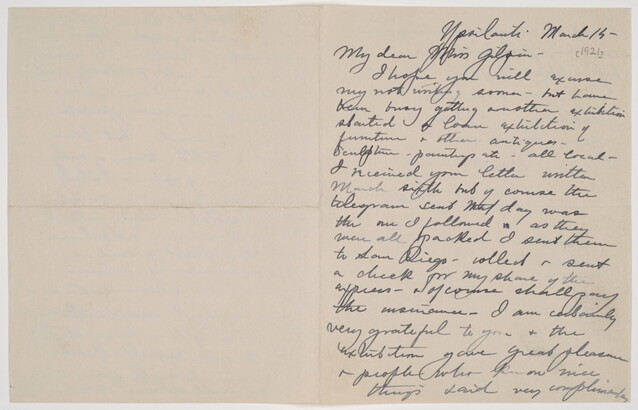 Ypsilanti March 14-
[1921]
My dear Miss Gilpin-
I hope you will excuse
my not writing sooner - but have
been busy getting another exhibition
started a loan exhibition of
furniture & other antiques-
Sculpture - paintings etc - all local-
I received your letter written
March sixth but of course the
telegram sent that day was
the one I followed as they
were all packed I sent them
to San Diego - collect & sent
a check for my share of the
express - & of course shall pay
the insurance - I am certainly
very grateful to you & the
exhibition gave great pleasure
& people who know nice
things said very complimentary